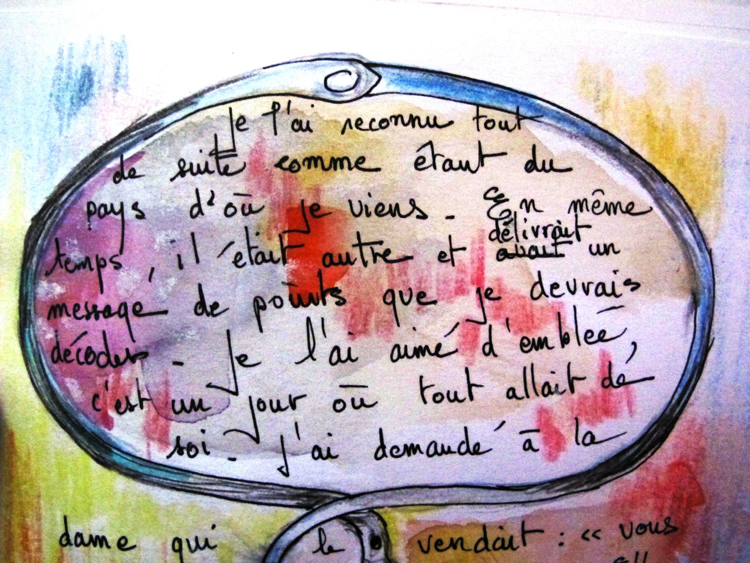 Je l'ai reconnu tout
de suite comme étant du
pays d'où je viens. En même
temps, il était autre et délivrait un
message de points que je devrais
décoder. Je l'ai aimé d'emblée,
c'est un jour où tout allait de
soi. J'ai demandé à la
dame qui le vendait : « vous